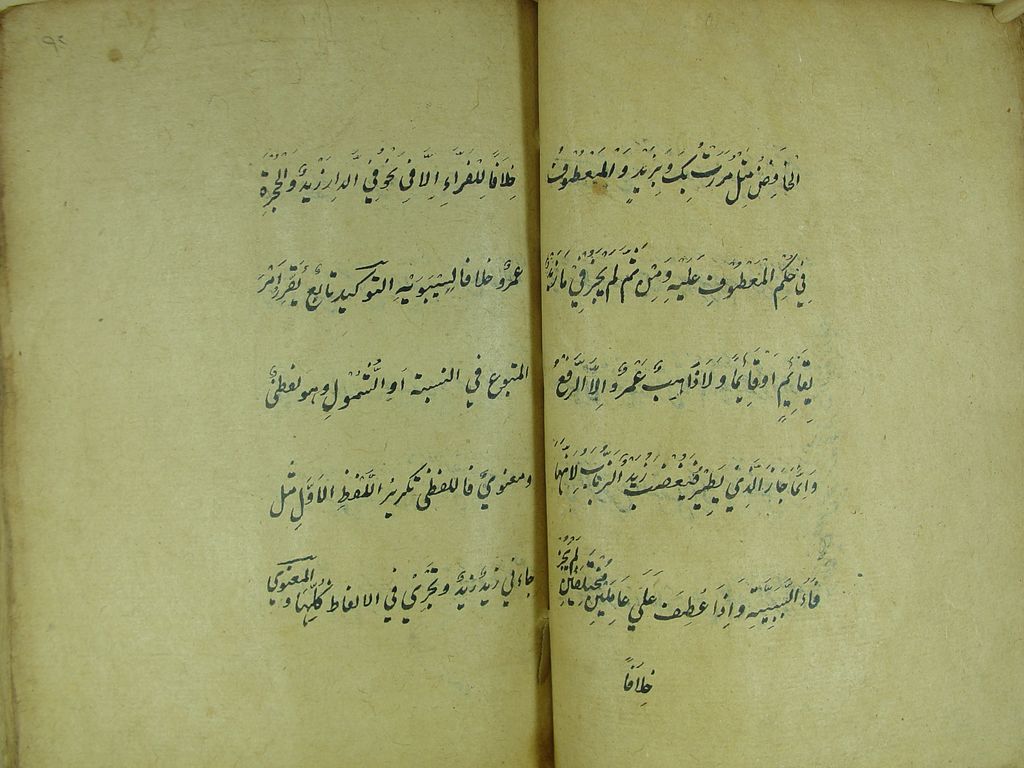 الخَافِضُ مِثْلُ مَرَرْتُ بِكَ وَبِزَيْدٍ وَالْمَعْطُوفُ
فِي حُكْمِ الْمَعْطُوفِ عَلَيْهِ وَمِنْ ثَمَّ لَمْ يَجُزْ فِي مَا زَيْدٌ
بِقَائِمٍ اَوْ قَائِمًا وَلَا ذَاهِبٌ عَمْرٌو اِلَّا الرَّفْعُ
وَاِنَّمَا جَازَ الَّذِي يَطِيْرُ فَيَغْضَبُ زَيْدٌ الذُّبَابُ لِاَنَّهَا
فَاءُ السَّبَبِيَّةِ وَاِذَا عُطِفَ عَلَي عَامِلَيْنِ مُخْتَلِفَيْنِ لَمْ يَجُزْ
خِلَافًا
خِلَافًا لِلْفَرَّاءِ اِلَّا فِي نَحْوِ فِي الدَّارِ زَيْدٌ وَالْحُجْرَةِ
عَمْرٌو خلافا لِسِيْبَوَيْهِ التوكيد تابعٌ يُقَرِّرُ اَمْرَ
المتبوع في النسبة اَوِ الشُّمُوْلِ وهو لفظيٌّ
ومعنويٌّ فاللفظيُّ تكريرُ اللَّفْظِ الاَوَّلِ مثل
جاءني زيدٌ زيدٌ ويَجْرِيْ في الالفاظ كُلِّهَا والمعنوي